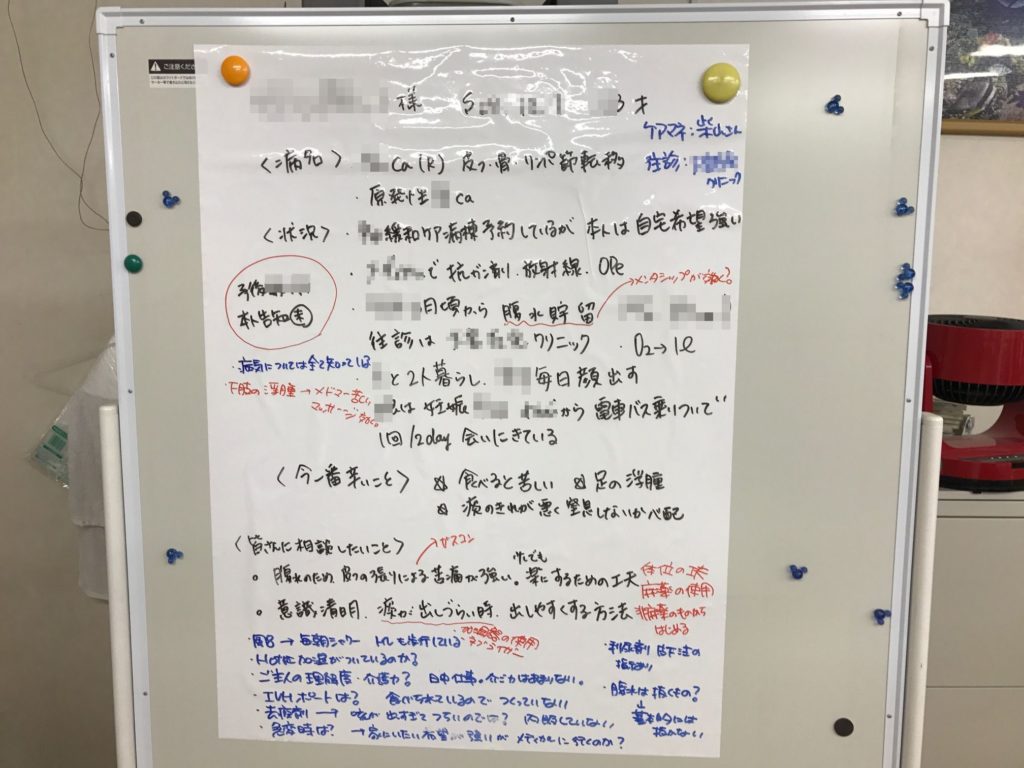 ご注意くださ
様 才
ケアマネ：柴山さん
〈病名〉 Ca(R) 皮フ・骨・リンパ節転移
往診： クリニック
・原発性 ca
〈状況〉 ・緩和ケア病棟予約しているが 本人は自宅希望強い
・ で 抗ガン剤．放射線．Ope
予後
本人告知
月頃から 腹水貯留
往診は クリニック ・O2→1ℓ
・病気については全て知っている
と2人暮らし． 毎日顔出す
下肢の浮腫→メドマー
マッサージ
は 妊娠 から 電車バス乗りついで
1回/2day 会いにきている
〈今一番辛いこと〉 食べると苦しい 足の浮腫
痰のきれが悪く窒息しないか心配
〈皆さんに相談したいこと〉
ガスコン
少しでも
○ 腹水のため 皮フの張りによる苦痛が強い。楽にするための工夫
体位の工夫
麻薬の使用
○ 意識清明．痰が出しづらい時．出しやすくする方法
非麻薬のものから
はじめる
→ 毎朝シャワー トイレも歩行している
・HOTに加湿がついているのか？
・ご主人の理解度・介護力？ 日中仕事。
・IVHポートは？ 食べられているので つくっていない
・去痰剤→ 痰が出すぎてつらいのでは？ 内服していない
・急変時は？ →家にいたい希望が強いが メディカルに行くのか？
・利尿剤
・腹水は抜くもの？
↓
基本的には
抜かない